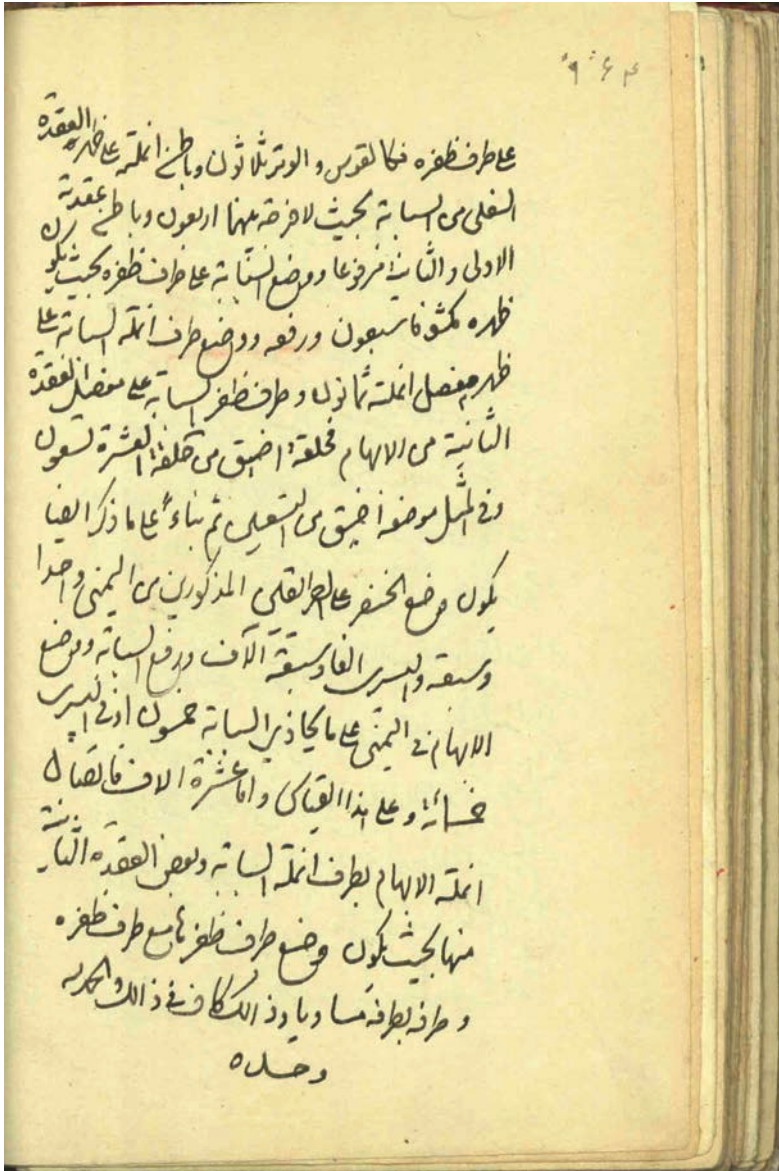 ٩٦٤
على طرف ظفره فكالقوس والوتر ثلاثون وباطن انملته على ظهر العقدة
السفلى من السبابة بحيث لا فرجة بينهما اربعون وباطن عقدته
الاولى والثانية مرفوعا ووضع السبابة على طرف ظفره بحيث يكون
ظهره مكشوفا سبعون ورفعه ووضع طرف انملة السبابة على
ظهر مفصل انملته ثمانون وطرف ظفر السبابة على مفصل العقدة
الثانية من الابهام فحلقة اضيق من حلقة العشرة تسعون
وفى المثل موضعه اضيق من التسعين ثم بناء على ما ذكر ايضا
يكون وضع الخنصر على المذكورين من اليمنى واحدا
وسبعة واليسرى الفا وسبعة آلاف ورفع السبابة ووضع
الابهام فى اليمنى على ما يحاذى السبابة خمسون او فى اليسرى
خمسمائة وعلى هذا القياس واما عشرة الاف فايصال
انملة الابهام بطرف انملة السبابة وبعض العقدة الثانية
منها بحيث يكون وضع طرف ظفرها مع طرف ظفره
وطرفه بطرفه مساويا وذالك كاف فى ذالك والحمد لله
وحده